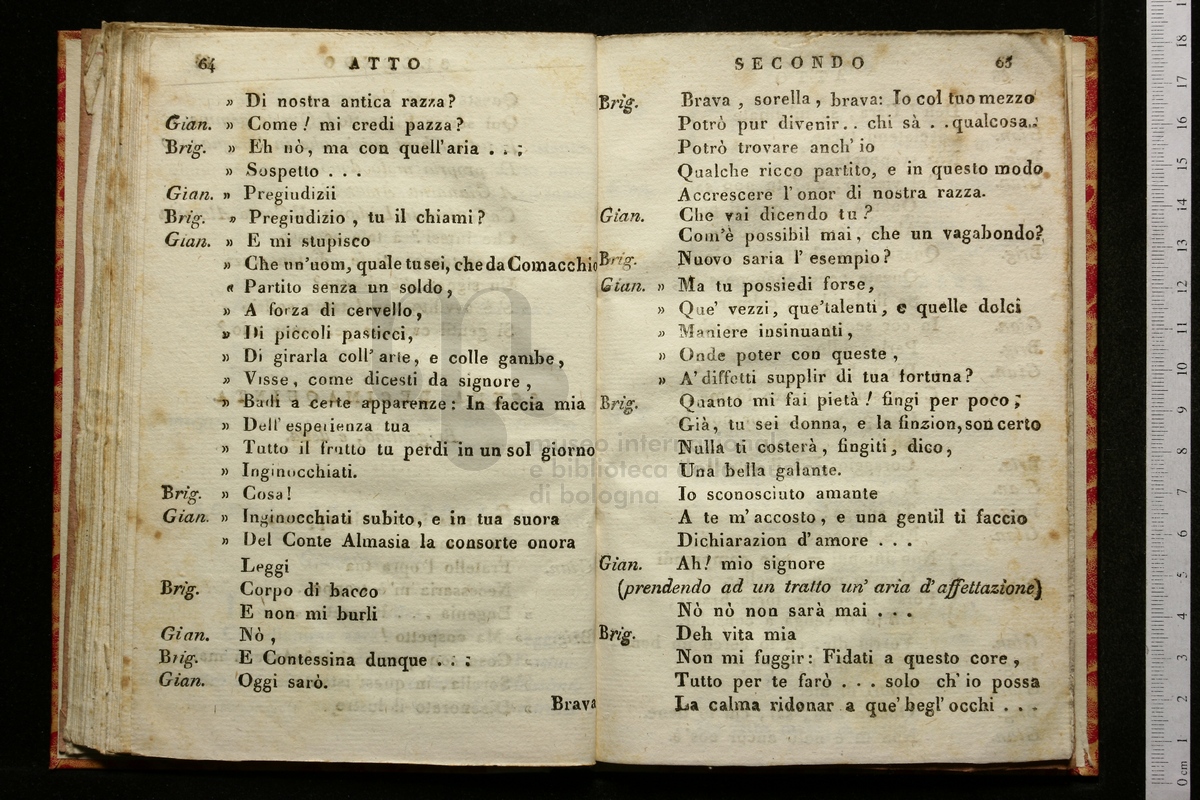 64 ATTO
» Di nostra antica razza?
Gian. » Come! mi credi pazza?
Brig. » Eh nò, ma con quell'aria . . ;
» Sospetto . . .
Gian. » Pregiudizii
Brig. » Pregiudizio, tu il chiami?
Gian. » E mi stupisco
» Che un'uom, quale tu sei, che da Comacchio
« Partito senza un soldo,
» A forza di cervello,
» Di piccoli pasticci,
» Di girarla coll' arte, e colle gambe,
» Visse, come dicesti da signore,
» Badi a certe apparenze: In faccia mia
» Dell' esperienza tua
» Tutto il frutto tu perdi in un sol giorno
» Inginocchiati.
Brig. » Cosa!
Gian. » Inginocchiati subito, e in tua suora
» Del Conte Almasia la consorte onora
Leggi
Brig. Corpo di bacco
E non mi burli
Gian. Nò,
Brig. E Contessina dunque . . :
Gian. Oggi sarò.
Brava
SECONDO 65
Brig. Brava, sorella, brava: Io col tuo mezzo
Potrò pur divenir . . chi sà . . qualcosa..
Potrò trovare anch' io
Qualche ricco partito, e in questo modo
Accrescere l' onor di nostra razza.
Gian. Che vai dicendo tu?
Com'è possibil mai, che un vagabondo?
Brig. Nuovo saria l' esempio?
Gian. » Ma tu possiedi forse,
» Que' vezzi, que'talenti, e quelle dolci
» Maniere insinuanti,
» Onde poter con queste,
» A' diffetti supplir di tua fortuna?
Brig. Quanto mi fai pietà! fingi per poco;
Già, tu sei donna, e la finzion, son certo
Nulla ti costerà, fingiti, dico,
Una bella galante.
Io sconosciuto amante
A te m' accosto, e una gentil ti faccio
Dichiarazion d' amore . . .
Gian. Ah! mio signore
(prendendo ad un tratto un' aria d' affettazione)
Nò nò non sarà mai . . .
Brig. Deh vita mia
Non mi fuggir: Fidati a questo core,
Tutto per te farò . . . solo ch' io possa
La calma ridonar a que' begl' occhi . . .
museo internazionale
e biblioteca della musica
di bologna